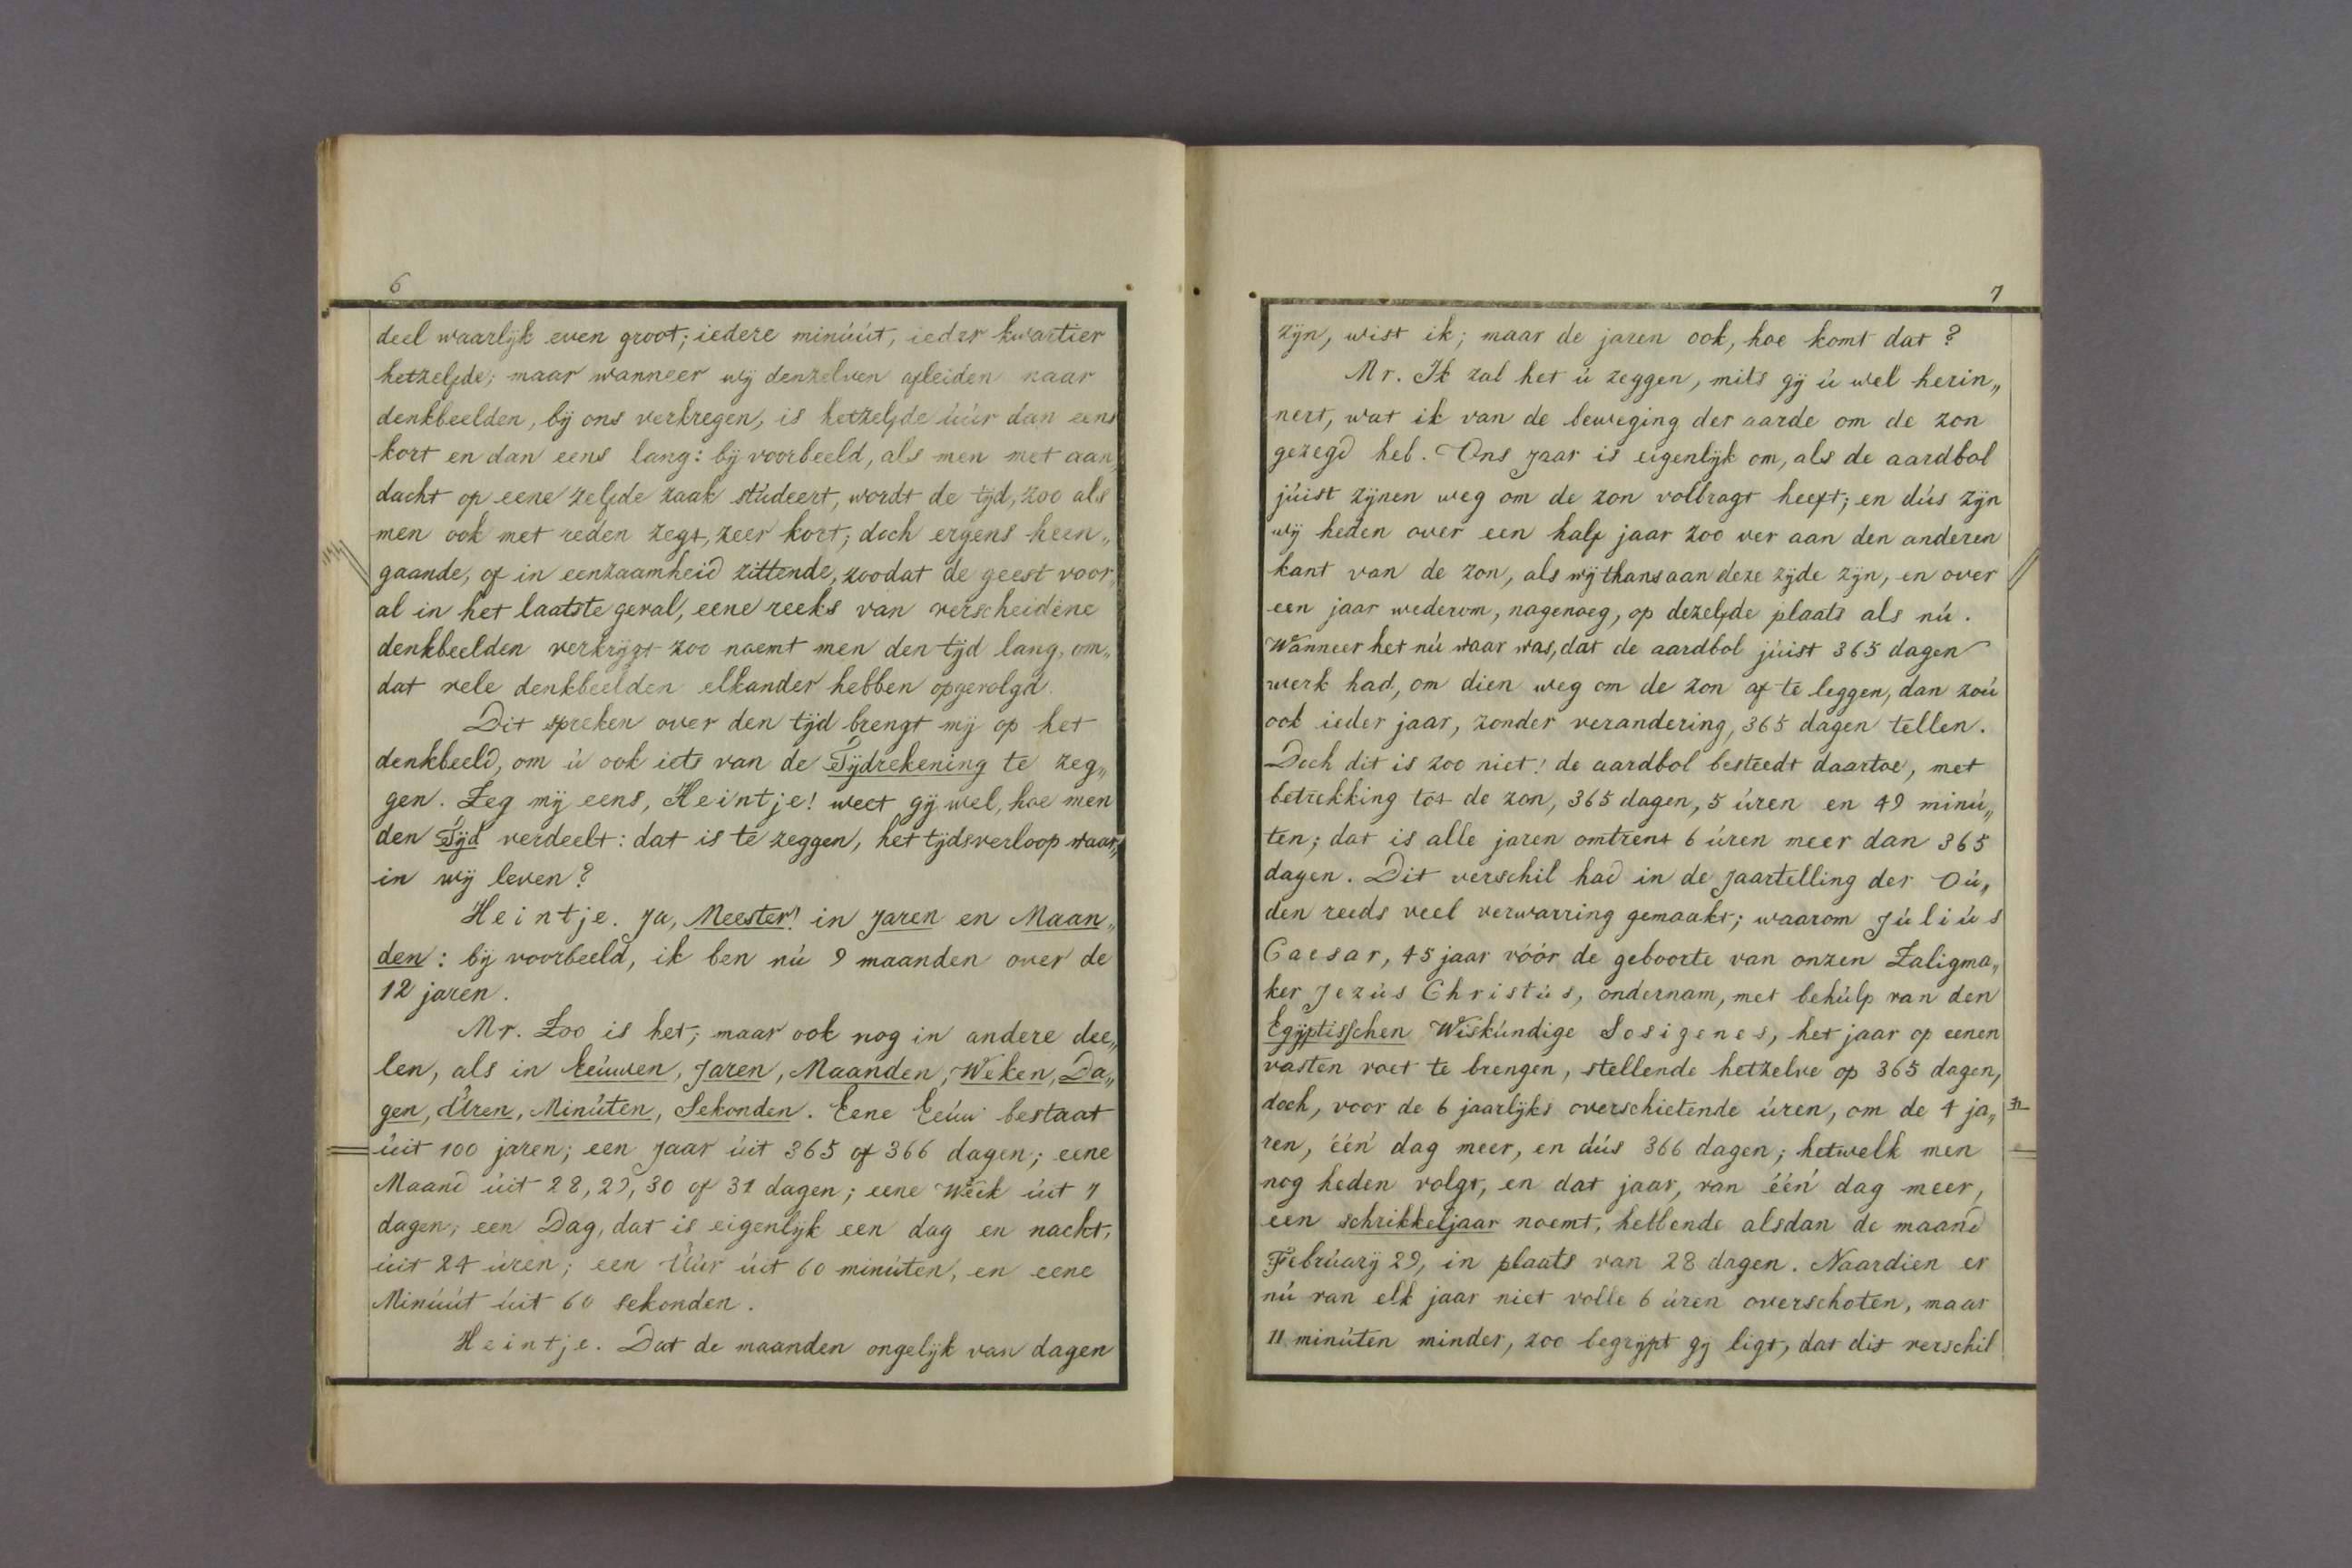 6
deel waarlijk even groot; iedere minúút, ieder kwartier
hetzelfde; maar wanneer wij denzelven afleiden naar
denkbeelden, bij ons verkregen, is hetzelfde úúr dan eens
kort en dan eens lang: bij voorbeeld, als men met aan„
dacht op eene zelfde zaak stúdeert, wordt de tijd, zoo als
men ook met reden zegt, zeer kort; doch ergens heen„
gaande, of in eenzaamheid zittende, zoodat de geest voor„
al in het laatste geval, eene reeks van verscheidene
denkbeelden verkrijgt zoo noemt men den tijd lang, om„
dat vele denkbeelden elkander hebben opgevolgd.
Dit spreken over den tijd brengt mij op het
denkbeeld, om ú ook iets van de Tijdrekening te zeg„
gen. Zeg mij eens, Heintje! weet gij wel, hoe men
den Tijd verdeelt: dat is te zeggen, het tijdsverloop waar„
in wij leven?
Heintje. Ja, Meester! in Jaren en Maan„
den: bij voorbeeld, ik ben nú 9 maanden over de
12 jaren.
Mr. Zoo is het; maar ook nog in andere dee„
len, als in Eeúwen, Jaren, Maanden, Weken, Da„
gen, Úren, Minúten, Sekonden. Eene Eeúw bestaat
úit 100 jaren; een Jaar úit 365 of 366 dagen; eene
Maand úit 28, 29, 30 of 31 dagen; eene Week úit 7
dagen; een Dag, dat is eigenlijk een dag en nacht,
úit 24 úren; een Úúr úit 60 minúten, en eene
Minúút úit 60 sekonden.
Heintje. Dat de maanden ongelijk van dagen
7
zijn, wist ik; maar de jaren ook, hoe komt dat?
Mr. Ik zal het ú zeggen, mits gij ú wel herin„
nert, wat ik van de beweging der aarde om de zon
gezegd heb. Ons Jaar is eigenlijk om, als de aardbol
júist zijnen weg om de zon volbragt heeft; en dús zijn
wij heden over een half jaar zoo ver aan den anderen
kant van de zon, als wij thans aan deze zijde zijn, en over
een jaar wederom, nagenoeg, op dezelfde plaats als nú.
Wanneer het nú waar was, dat de aardbol júist 365 dagen
werk had, om dien weg om de zon af te leggen, dan zoú
ook ieder jaar, zonder verandering, 365 dagen tellen.
Doch dit is zoo niet! de aardbol besteedt daartoe, met
betrekking tot de zon, 365 dagen, 5 úren en 49 minú„
ten; dat is alle jaren omtrent 6 úren meer dan 365
dagen. Dit verschil had in de Jaartelling der Oú„
den reeds veel verwarring gemaakt; waarom Júliús
Caesar, 45 jaar vóór de geboorte van onzen Zaligma„
ker Jezús Christús, ondernam, met behúlp van den
Egijptisschen Wiskúndige Sosigenes, het jaar op eenen
vasten voet te brengen, stellende hetzelve op 365 dagen,
doch, voor de 6 jaarlijks overschietende úren, om de 4 ja„
ren, één dag meer, en dús 366 dagen; hetwelk men
nog heden volgt, en dat jaar, van één dag meer,
een schrikkeljaar noemt, hebbende alsdan de maand
Febrúarij 29, in plaats van 28 dagen. Naardien er
nú van elk jaar niet volle 6 úren overschoten, maar
11 minúten minder, zoo begrijpt gij ligt, dat dit verschil